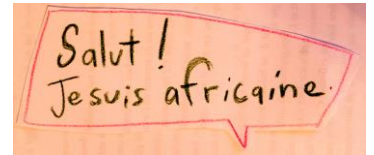 Salut !
Je suis africaine.